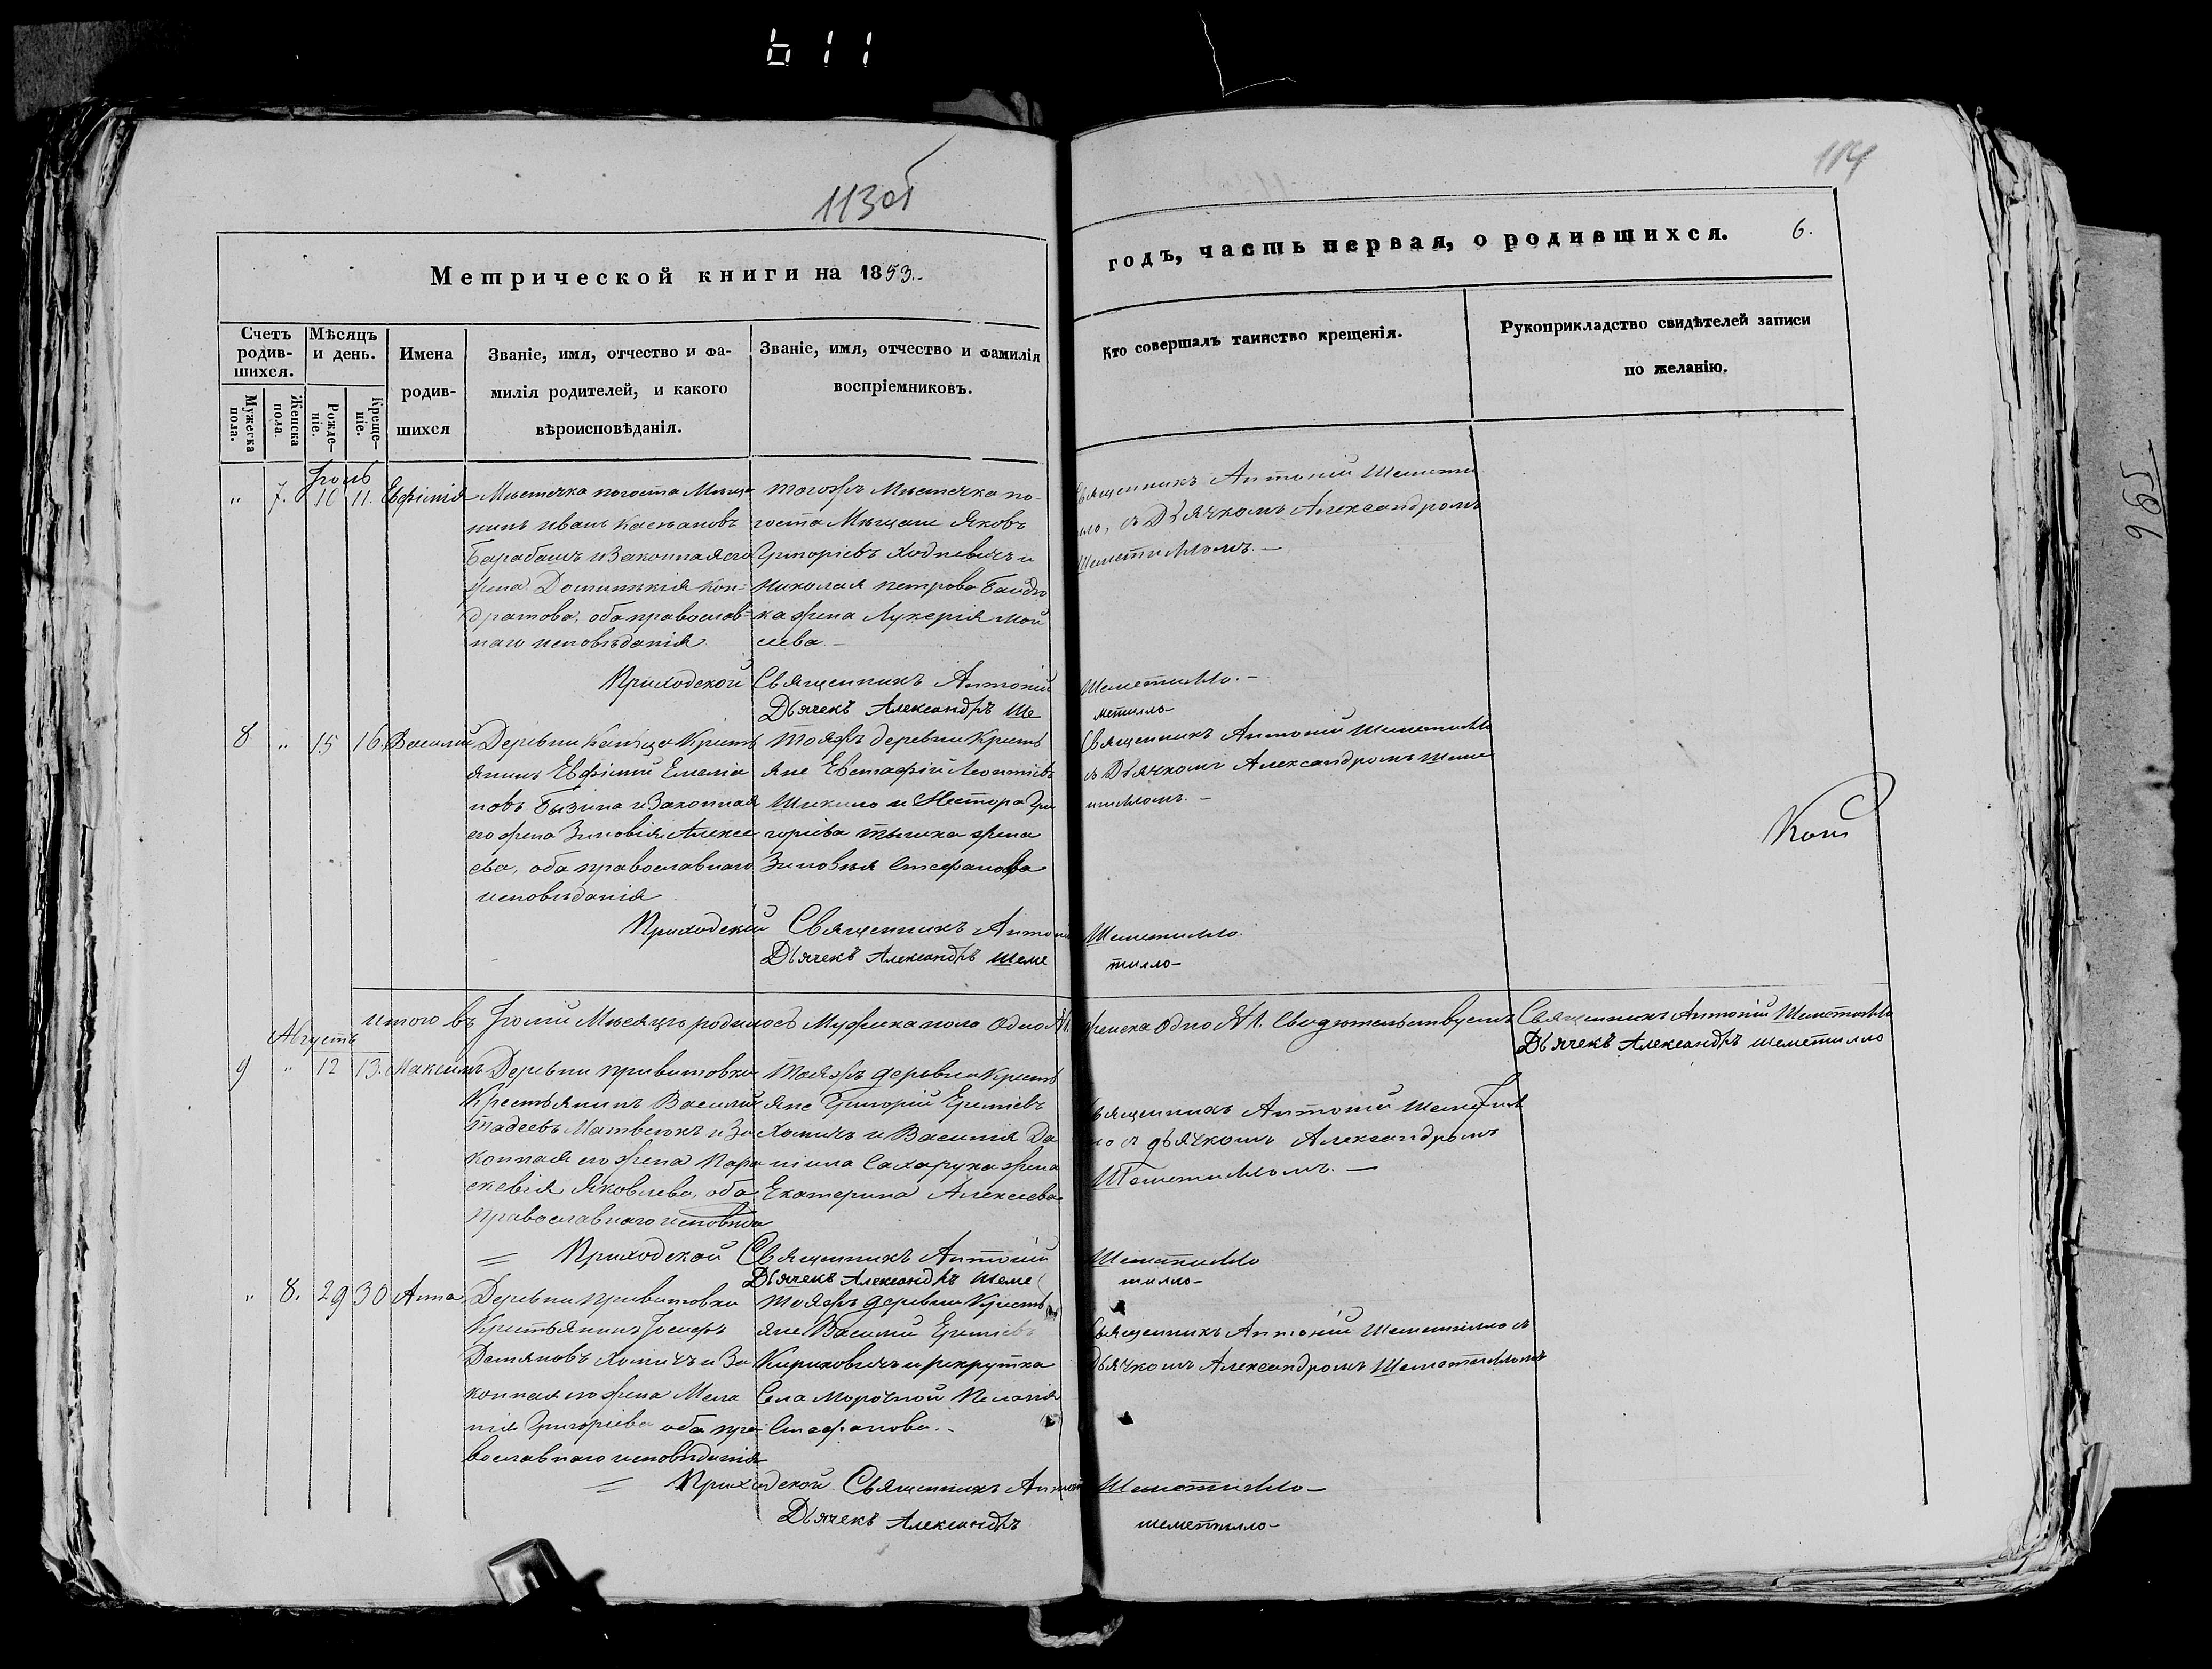 611
113об
114
Метрической книги на 1853.
годъ, часть первая, о родившихся. 6.
Счетъ родившихся.
Мѣсяцъ и день.
Имена родившихся
Званіе, имя, отчество и фамилія родителей, и какого вѣроисповѣданія.
Званіе, имя, отчество и фамилія воспріемниковъ.
Кто совершалъ таинство крещенія.
Рукоприкладство свидѣтелей записи по желанію.
Мужеска пола.
Женска пола.
Рожденіе.
Крещеніе.
Іюль
" 7. 10 11. Евфимія
Мѣстечка погоста Мѣща
нинъ Иванъ Касьановъ
Барабашъ и Законная его
жена Доминикія Кон-
дратова, оба православ-
наго исповѣданія
тогожъ Мѣстечка по-
госта Мѣщане Яковъ
Григоріевъ Ходневичъ и
Николая Петрова Бандю
ка жена Лукерія Мой
сеева.
Священникъ Антоній Шемети
ло, съ Дьячкомъ Александромъ
Шеметилломъ.
Приходской Священникъ Антоній Шеметилло.
Дьячекъ Александръ Шеметилло
8 " 15 16. Василій
Деревни Крестъ
янинъ Евфимій Емелія
новъ Бызина и Законная
его жена Зиновія Алексе
ева, оба православнаго
исповѣданія
Тояжъ деревни Кресть
яне Евстафій Леонтіевъ
Шикило и Нестора Гри
горіева жена
Зиновія Стефанова
Священникъ Антоній Шеметилло
съ Дьячкомъ Александромъ Шеме
тилломъ.
Приходскій Священникъ Антоній Шеметилло.
Дьячекъ Александръ Шеметилло
итого въ Іюли Мѣсяцѣ родилось Мужска пола Одно №1. Женска Одно №1. Свидѣтельствуемъ Священникъ Антоній Шеметилло
Дьячекъ Александръ Шеметилло
Августъ
9 " 12 13. Максимъ
Деревни Привитовки
Крестьянинъ Василій
Фадеевъ Матвѣюкъ и За
конная его жена Пара
скевія Яковлева, оба
Православнаго исповѣда
Тояжъ деревни Кресть
яне Григорій Ереміевъ
Хомичъ и Василія Да
ніила Сахарука жена
Екатерина Алексѣева
Священникъ Антоній Шеметил
ло съ дьячкомъ Александромъ
Шеметилломъ.
Приходской Священникъ Антоній Шеметилло
Дьячекъ Александръ Шеметилло
" 8. 29 30 Анна
Деревни Привитовки
Крестьянинъ Іосифъ
Демяновъ Хомичъ и За
конная его жена Мела
нія Григоріева оба пра
вославнаго исповѣданія
Тояжъ деревни Кресть
яне Василій Ереміевъ
Кириковичъ и рекрутка
Села Морочной Пелагія
Стефанова.
Священникъ Антоній Шеметилло съ
Дьячкомъ Александромъ Шеметилломъ
Приходской Священникъ Антоній Шеметилло
Дьячекъ Александръ Шеметилло